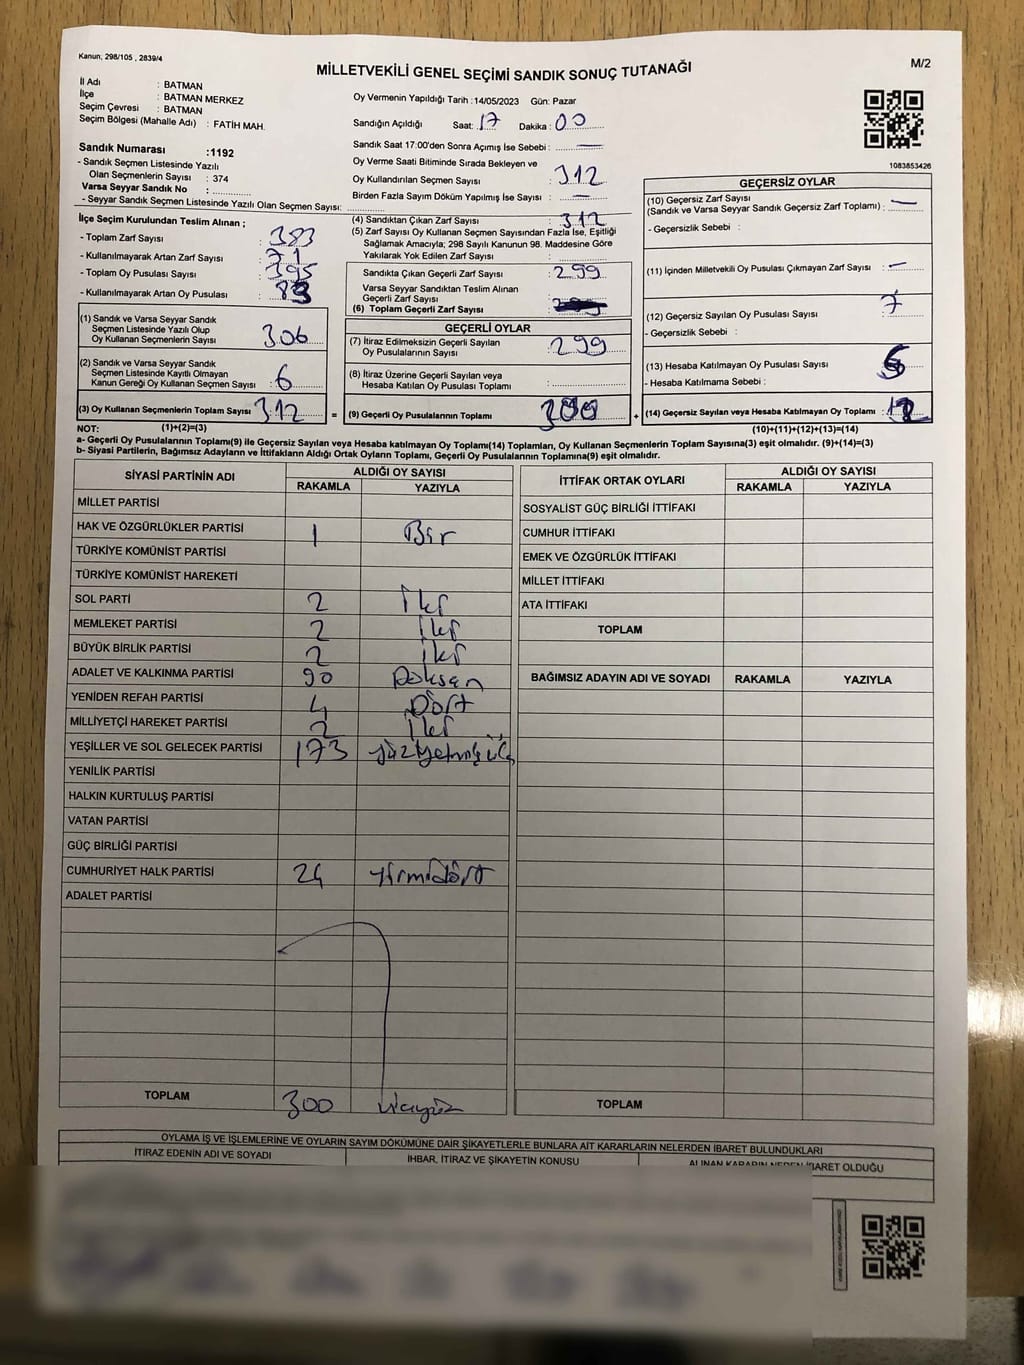 Kanun, 298/105 , 2839/4
MİLLETVEKİLİ GENEL SEÇİMİ SANDIK SONUÇ TUTANAĞI
M/2
İl Adı : BATMAN
İlçe : BATMAN MERKEZ
Seçim Çevresi : BATMAN
Seçim Bölgesi (Mahalle Adı) : FATİH MAH.
Oy Vermenin Yapıldığı Tarih :14/05/2023 Gün: Pazar
Sandığın Açıldığı Saat: 17 Dakika : 00
Sandık Saat 17:00'den Sonra Açımış İse Sebebi : —
Oy Verme Saati Bitiminde Sırada Bekleyen ve
Oy Kullandırılan Seçmen Sayısı : 312
Birden Fazla Sayım Döküm Yapılmış İse Sayısı : —
1083853426
Sandık Numarası :1192
- Sandık Seçmen Listesinde Yazılı
Olan Seçmenlerin Sayısı : 374
Varsa Seyyar Sandık No :
- Seyyar Sandık Seçmen Listesinde Yazılı Olan Seçmen Sayısı:
İlçe Seçim Kurulundan Teslim Alınan ;
- Toplam Zarf Sayısı : 383
- Kullanılmayarak Artan Zarf Sayısı : 71
- Toplam Oy Pusulası Sayısı : 395
- Kullanılmayarak Artan Oy Pusulası : 83
(1) Sandık ve Varsa Seyyar Sandık
Seçmen Listesinde Yazılı Olup
Oy Kullanan Seçmenlerin Sayısı : 306
(2) Sandık ve Varsa Seyyar Sandık
Seçmen Listesinde Kayıtlı Olmayan
Kanun Gereği Oy Kullanan Seçmen Sayısı : 6
(3) Oy Kullanan Seçmenlerin Toplam Sayısı : 312
(4) Sandıktan Çıkan Zarf Sayısı : 312
(5) Zarf Sayısı Oy Kullanan Seçmen Sayısından Fazla İse, Eşitliği
Sağlamak Amacıyla; 298 Sayılı Kanunun 98. Maddesine Göre
Yakılarak Yok Edilen Zarf Sayısı :
Sandıkta Çıkan Geçerli Zarf Sayısı : 299
Varsa Seyyar Sandıktan Teslim Alınan
Geçerli Zarf Sayısı :
(6) Toplam Geçerli Zarf Sayısı :
GEÇERLİ OYLAR
(7) İtiraz Edilmeksizin Geçerli Sayılan
Oy Pusulalarının Sayısı : 299
(8) İtiraz Üzerine Geçerli Sayılan veya
Hesaba Katılan Oy Pusulası Toplamı :
= (9) Geçerli Oy Pusulalarının Toplamı : 300
GEÇERSİZ OYLAR
(10) Geçersiz Zarf Sayısı
(Sandık ve Varsa Seyyar Sandık Geçersiz Zarf Toplamı) : —
- Geçersizlik Sebebi :
(11) İçinden Milletvekili Oy Pusulası Çıkmayan Zarf Sayısı : —
(12) Geçersiz Sayılan Oy Pusulası Sayısı : 7
- Geçersizlik Sebebi :
(13) Hesaba Katılmayan Oy Pusulası Sayısı : 5
- Hesaba Katılmama Sebebi :
+ (14) Geçersiz Sayılan veya Hesaba Katılmayan Oy Toplamı : 12
NOT: (1)+(2)=(3)
(10)+(11)+(12)+(13)=(14)
a- Geçerli Oy Pusulalarının Toplamı(9) ile Geçersiz Sayılan veya Hesaba katılmayan Oy Toplamı(14) Toplamları, Oy Kullanan Seçmenlerin Toplam Sayısına(3) eşit olmalıdır. (9)+(14)=(3)
b- Siyasi Partilerin, Bağımsız Adayların ve İttifakların Aldığı Ortak Oyların Toplamı, Geçerli Oy Pusulalarının Toplamına(9) eşit olmalıdır.
SİYASİ PARTİNİN ADI ALDIĞI OY SAYISI
RAKAMLA YAZIYLA
MİLLET PARTİSİ
HAK VE ÖZGÜRLÜKLER PARTİSİ 1 Bir
TÜRKİYE KOMÜNİST PARTİSİ
TÜRKİYE KOMÜNİST HAREKETİ
SOL PARTİ 2 İki
MEMLEKET PARTİSİ 2 İki
BÜYÜK BİRLİK PARTİSİ 2 İki
ADALET VE KALKINMA PARTİSİ 90 Doksan
YENİDEN REFAH PARTİSİ 4 Dört
MİLLİYETÇİ HAREKET PARTİSİ 2 İki
YEŞİLLER VE SOL GELECEK PARTİSİ 173 yüzyetmişüç
YENİLİK PARTİSİ
HALKIN KURTULUŞ PARTİSİ
VATAN PARTİSİ
GÜÇ BİRLİĞİ PARTİSİ
CUMHURİYET HALK PARTİSİ 24 yirmidört
ADALET PARTİSİ
TOPLAM 300 üçyüz
İTTİFAK ORTAK OYLARI ALDIĞI OY SAYISI
RAKAMLA YAZIYLA
SOSYALİST GÜÇ BİRLİĞİ İTTİFAKI
CUMHUR İTTİFAKI
EMEK VE ÖZGÜRLÜK İTTİFAKI
MİLLET İTTİFAKI
ATA İTTİFAKI
TOPLAM
BAĞIMSIZ ADAYIN ADI VE SOYADI RAKAMLA YAZIYLA
TOPLAM
OYLAMA İŞ VE İŞLEMLERİNE VE OYLARIN SAYIM DÖKÜMÜNE DAİR ŞİKAYETLERLE BUNLARA AİT KARARLARIN NELERDEN İBARET BULUNDUKLARI
İTİRAZ EDENİN ADI VE SOYADI İHBAR, İTİRAZ VE ŞİKAYETİN KONUSU ALINAN KARARIN NEDEN İBARET OLDUĞU